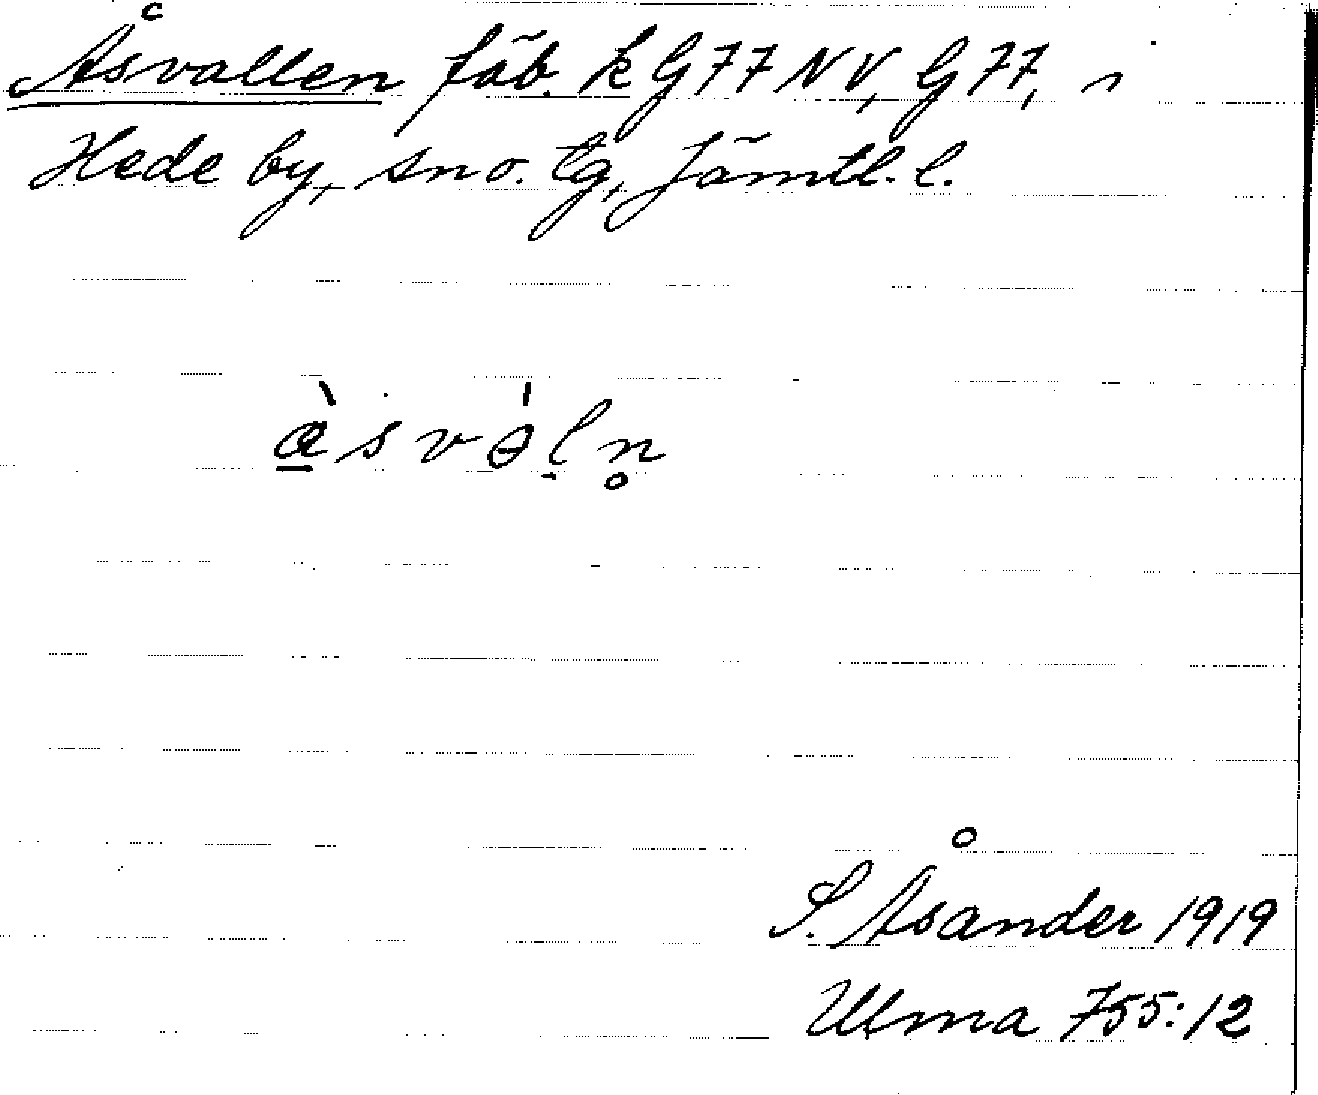 Åsvallen fäb. k G77NV, G77, i
Hede by, sn o. tg, Jämtl. l.
S. Åsander 1919
Ulma 755:12